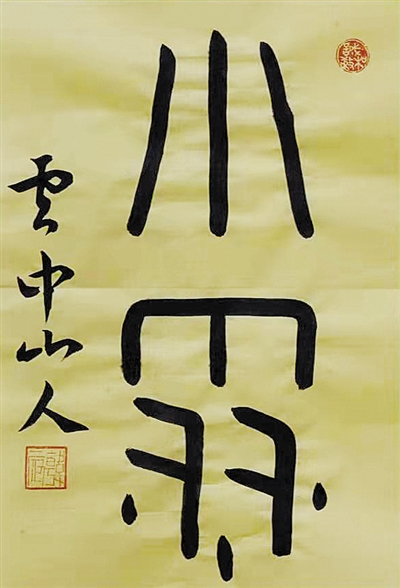 小雪
雲中山人